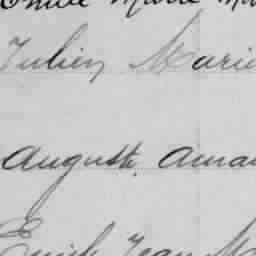 Emile Marie
Julien Marie
Auguste Aman
Emile Jean M